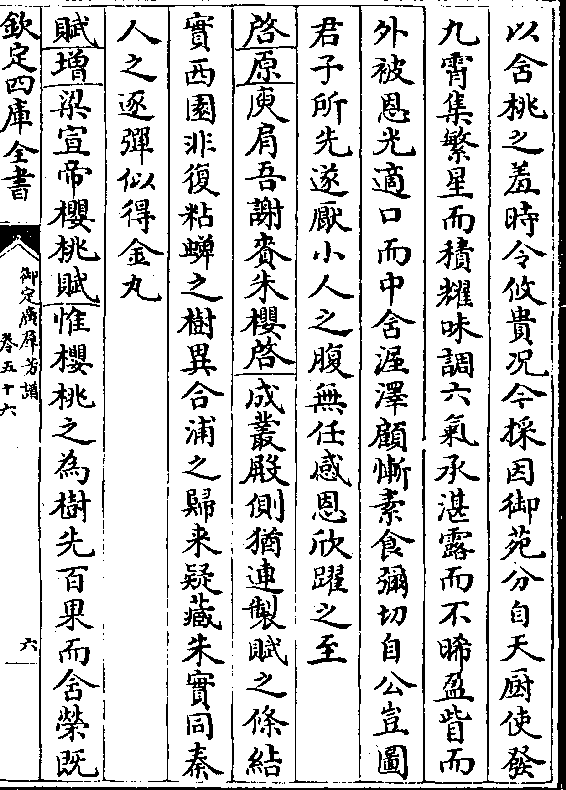 以含桃之羞時令攸貴况今採因御苑分自天厨使發
九霄集繁星而積耀味調六氣承湛露而不晞盈眥而
外被恩光適口而中含渥澤顧慚素食彌切自公豈圖
君子所先遂厭小人之腹無任感恩欣躍之至
啓原庾肩吾謝賚朱櫻啓成叢殿側猶連製賦之條結
實西園非復粘蟬之樹異合浦之歸来疑藏朱實同秦
人之逐彈似得金丸
賦增梁宣帝櫻桃賦惟櫻桃之為樹先百果而含榮既
欽定四庫全書
御定廣羣芳譜
卷五十六
六